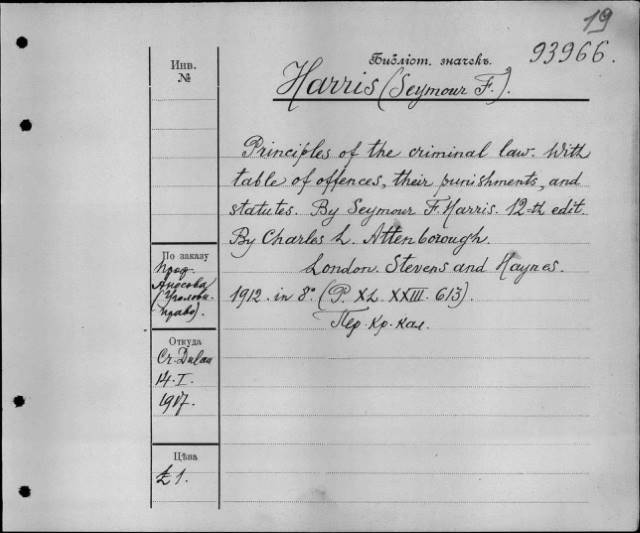 19
Библіот. значекъ.
93966.
Инв.
№
Harris (Seymour F.).
Principles of the criminal law. With
table of offences, their punishments, and
statutes. By Seymour F. Harris. 12-th edit.
By Charles L. Attenborough.
London. Stevens and Haynes.
1912. in 8° (P. XL. XXIII. 613).
Пер. кр. кал.
По заказу
проф.
Аносова
(Уголовн.
право).
Откуда
Ст. Dulau
14. I.
1917.
Цѣна
£ 1.